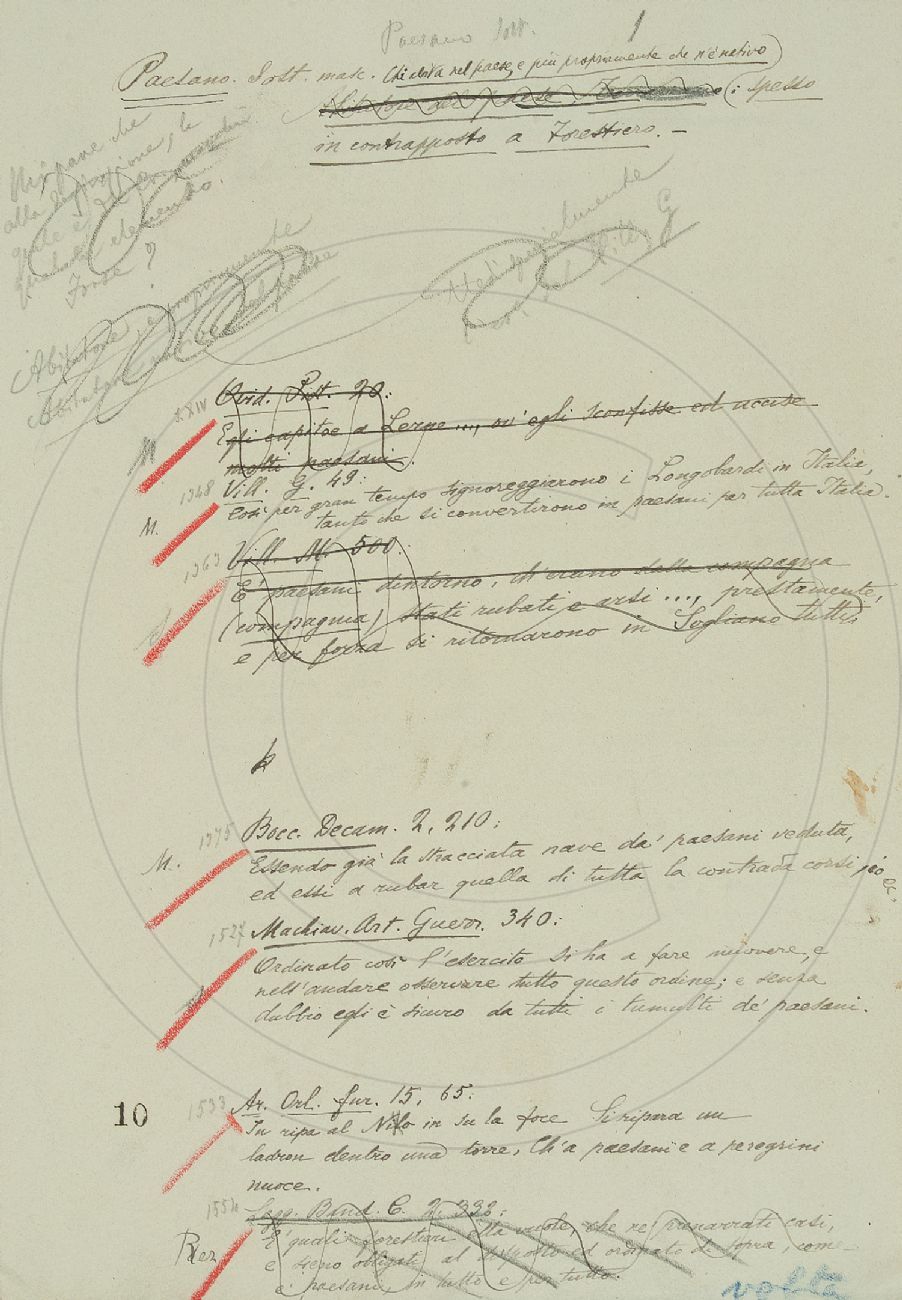 Paesano Sost. 1
Paesano. Sost. masc. Chi abita nel paese, e più propriamente che n'è nativo
Abitatore del paese : spesso
in contrapposto a Forestiero. —
Mi pare che
alla definizione, la
quale è
qualche elemento.
Forse
Abitatore, e propriamente
Abitatore nativo del paese
Vedi specialmente
XXIV
Ovid. Pist. 20:
Egli capitoe a Lenne ..., ov'egli sconfisse ed uccise
molti paesani.
M
1348
Vill. G. 49:
M. Così per gran tempo signoreggiarono i Longobardi in Italia,
tanto che si convertirono in paesani per tutta Italia.
1363
Vill. M. 500:
E' paesani dintorno, ch'erano dalla compagna
(compagnia) stati rubati e arsi ...., prestamente,
e per forza si ritornarono in Sogliano tutti,
1375
Bocc. Decam. 2, 210:
M. Essendo già la stracciata nave da' paesani veduta,
ed essi a rubar quella di tutta la contrada corsi, ec.
1527
Machiav. Art. Guerr. 340:
Ordinato così l'esercito si ha a fare muovere, e
nell'andare osservare tutto questo ordine; e senza
dubbio egli è sicuro da tutti i tumulti de' paesani.
10
1533
Ar. Orl. fur. 15, 65:
In ripa al Nilo in su la foce Si ripara un
ladron dentro una torre, Ch'a paesani e a peregrini
nuoce.
1554
Legg. Band. C. 2. 338:
E' quali forestieri alla che ne' prenarrati casi,
e sieno obligati al disposto ed ordinato di sopra, come
e' paesani, in tutto e per tutto.
volta